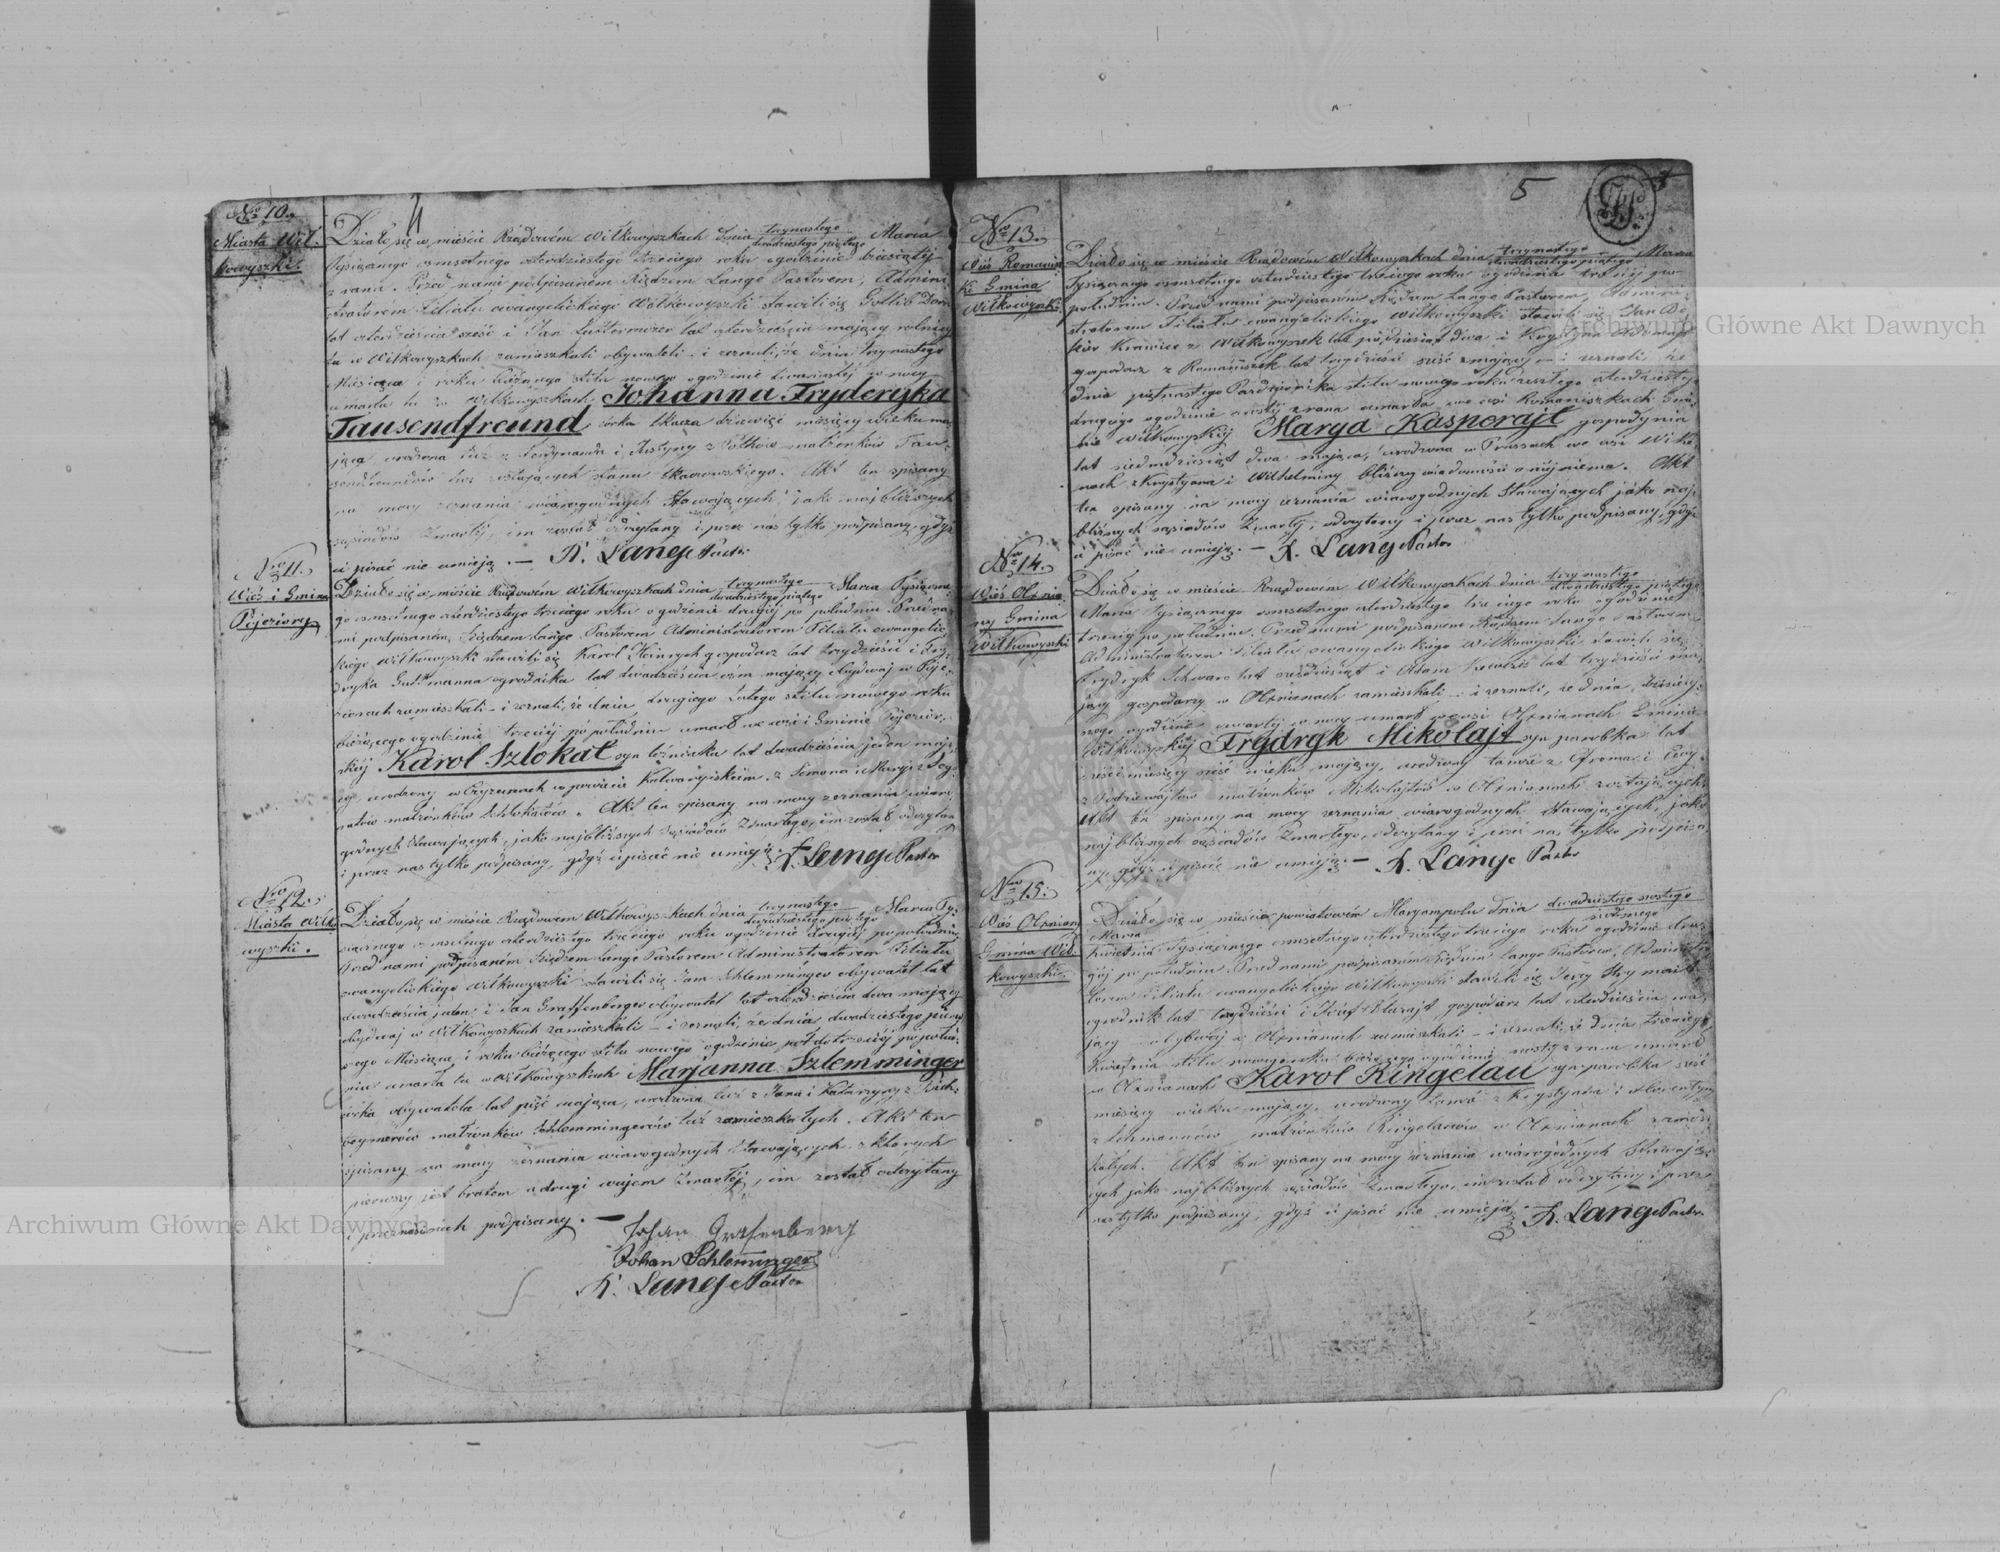 4
No 10.
Miasta Wił-
kowyszki.
Działo się w mieście Rządowém Wiłkowyszkach dnia trzynastego/dwudziestego piątego Marca
Tysiącznego osmsetnego czterdziestego trzeciego roku o godzinie dziesiątej
z rana. Przed nami podpisanem Xiędzem Lange Pastorem, Admini-
stratorem Filiału ewangelickiego Wiłkowyszki stawili się Gottlieb
lat czterdzieści sześć i Jan lat czterdzieścia mający rolnicy
tu w Wiłkowyszkach zamieszkali obywateli – i zeznali, że dnia trzynastego
Miesiąca i roku bieżącego stilu nowego o godzinie dwunastej w nocy
umarła tu w Wiłkowyszkach, Johanna Fryderyka
Tausendfreund, córka tkacza dziewięć miesięcy wieku ma-
jąca urodzona tuż z Ferdynanda i Justyny z małżonków Tau-
sendfreundów tuż zostających stanu tkaczowskiego. Akt ten spisany
na mocy zeznania wiarogodnych Stawających, jako najbliższych
sąsiadów Zmarłej, im został odczytany i przez nas tylko podpisany, gdyż
ci pisać nie umieją. — K. Lange Pastor
Nro 11.
Wieś i Gmina
Pojeziory
Działo się w mieście Rządowém Wiłkowyszkach dnia trzynastego/dwudziestego piątego Marca Tysiączne-
go osmsetnego czterdziestego trzeciego roku o godzinie drugiéj po południu. Przed na-
mi podpisaném Xiędzem Lange Pastorem Administratorem Filiału ewangelic-
kiego Wiłkowyszki stawili się Karol Heinrych gospodarz lat trzydzieści i Fry-
dryka Guttmanna ogrodnika lat dwadzieścia ośm mający obydwaj w Poje-
ziorach zamieszkali – i zeznali, że dnia drugiego Lutego stilu nowego roku
bieżącego o godzinie trzeciéj po południu umarł we wsi i Gminie Pojezior-
skiéj Karol Szlokat syn lat dwadzieścia jeden mają-
cy, urodzony w powiecie Kalwaryjskiém, z Simona i Maryi z
małżonków Schlokatów. Akt ten spisany na mocy zeznania wiaro-
godnych Stawających, jako najbliższych sąsiadów Zmarłego, im został odczytan
i przez nas tylko podpisany, gdyż ci pisać nie umieją. K. Lange Pastor
Nro 12.
Miasta Wiłko-
wyszki.
Działo się w mieście Rządowém Wiłkowyszkach dnia trzynastego/dwudziestego piątego Marca Ty-
siącznego osmsetnego czterdziestego trzeciego roku o godzinie drugiéj po południu.
Przed nami podpisaném Xiędzem Lange Pastorem Administratorem Filiału
ewangelickiego Wiłkowyszki stawili się Jan Schlemminger obywatel lat
dwadzieścia jeden i Jan Graffenberger obywatel lat czterdzieścia dwa mający
obydwaj w Wiłkowyszkach zamieszkali – i zeznali, że dnia dwudziestego pierw-
szego Miesiąca i roku bieżącego stilu nowego o godzinie pół do trzeciéj po połud-
niu umarła tu w Wiłkowyszkach Marjanna Szlemminger
córka obywatela lat pięć mająca, urodzona tuż z Jana i Katarzyny z
małżonków Schlemmingerów tuż zamieszkałych. Akt ten
spisany na mocy zeznania wiarogodnych Stawających z których
pierwszy jest bratem a drugi wujem Zmarłéj, im został odczytany
i przez podpisany. —
Johan Grafenberg
Johan Schleminger
K. Lange Pastor
5
Nro 13.
Wieś Romanisz-
ki Gmina
Wiłkowyszki
Działo się w mieście Rządowém Wiłkowyszkach dnia trzynastego/dwudziestego piątego Marca
Tysiącznego osmsetnego czterdziestego trzeciego roku o godzinie trzeciéj po
południu. Przed nami podpisaném Xiędzem Lange Pastorem, Admini-
stratorem Filiału ewangelickiego Wiłkowyszki stawili się Jan
krawiec z Wiłkowyszek lat pięćdziesiąt dwa i Krystyan
gospodarz z Romaniszek lat trzydzieści sześć mający – i zeznali że
dnia piętnastego Października stilu nowego roku zeszłego czterdziestego
drugiego o godzinie szóstéj z rana umarła we wsi Romaniszkach Gmi-
nie Wiłkowyskiéj Marya Kasperajt gospodynia
lat siedmdziesiąt dwa mająca, urodzona w Prusach we wsi
z Krystyana i Wilhelminy bliższéj wiadomości o niéj niema. Akt
ten spisany na mocy zeznania wiarogodnych Stawających jako naj-
bliższych sąsiadów Zmarłéj, odczytany i przez nas tylko podpisany, gdyż
ci pisać nie umieją. — K. Lange Pastor
Nro 14.
Wieś Olznia-
ny Gmina
Wiłkowyszki
Działo się w mieście Rządowém Wiłkowyszkach dnia trzynastego/dwudziestego piątego
Marca Tysiącznego osmsetnego czterdziestego trzeciego roku o godzinie
trzeciéj po południu. Przed nami podpisaném Xiędzem Lange Pastorem
Administratorem Filiału ewangelickiego Wiłkowyszki stawili się
Frydryk Schwarc lat sześćdziesiąt i Adam lat trzydzieści ma-
jący gospodarzy w Olznianach zamieszkali – i zeznali, że dnia dzisiej-
szego o godzinie czwartéj w nocy umarł we wsi Olznianach Gminie
Wiłkowyskiéj Frydryk Mikolajt syn parobka lat
sześć miesięcy sześć wieku mający, urodzony tamże z i Ewy
z małżonków Mikolajtów w Olznianach zostających
Akt ten spisany na mocy zeznania wiarogodnych Stawających, jako
najbliższych sąsiadów Zmarłego, odczytany i przez nas tylko podpisa-
ny, gdyż ci pisać nie umieją. — K. Lange Pastor
Nro 15.
Wieś Olzniany
Gmina Wił-
kowyszki
Działo się w mieście powiatowém Maryampolu dnia dwudziestego szóstego/siódmego
Marca/Kwietnia Tysiącznego osmsetnego czterdziestego trzeciego roku o godzinie dru-
giéj po południu. Przed nami podpisaném Xiędzem Lange Pastorem, Administra-
torem Filiału ewangelickiego Wiłkowyszki stawili się Jerzy
ogrodnik lat trzydzieści i Józef gospodarz lat czterdzieścia ma-
jący – obydwaj w Olznianach zamieszkali – i zeznali, że dnia trzeciego
Kwietnia stilu nowego roku bieżącego o godzinie szóstéj z rana umarł
w Olznianach Karol Ringelau syn parobka sześć
miesięcy wieku mający, urodzony tamże z Krystyana i
z Lehmannów małżonków Ringelauów w Olznianach zamiesz-
kałych. Akt ten spisany na mocy zeznania wiarogodnych Stawają-
cych jako najbliższych sąsiadów Zmarłego, im został odczytany i przez
nas tylko podpisany, gdyż ci pisać nie umieją. K. Lange Pastor
Archiwum Główne Akt Dawnych
Archiwum Główne Akt Dawnych